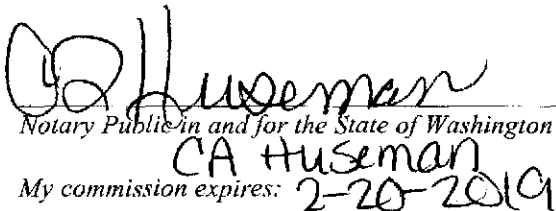 CA Huseman
Notary Public in and for the State of Washington
CA Huseman
My commission expires: 2-20-2019